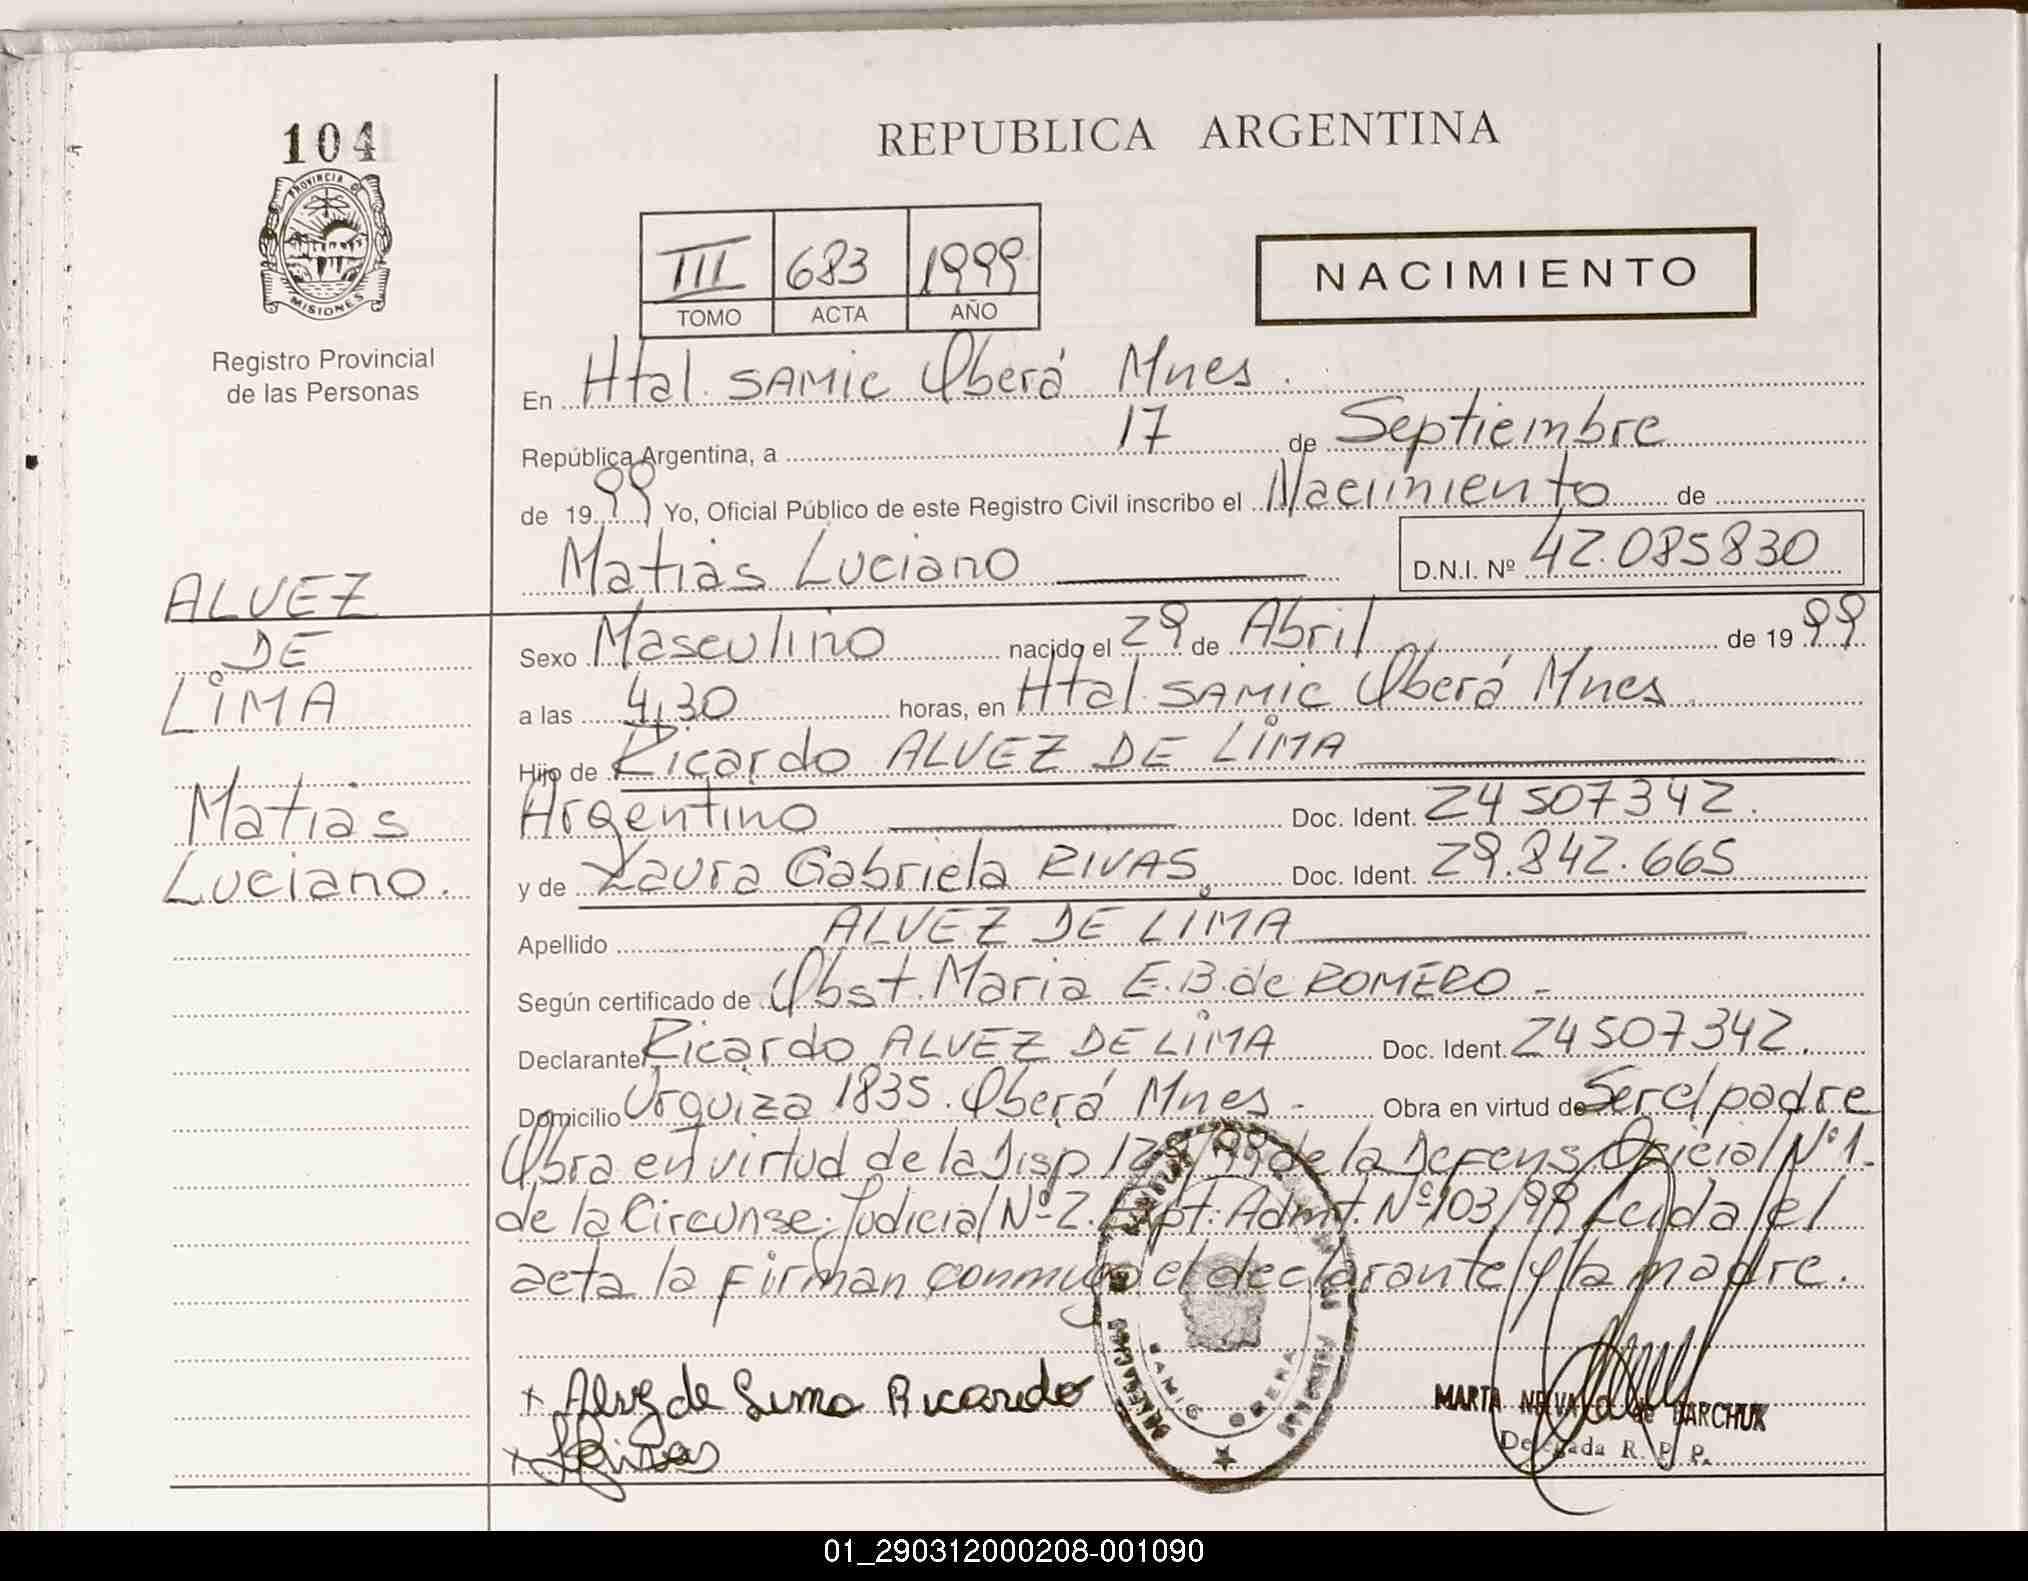 104
PROVINCIA DE
MISIONES
Registro Provincial
de las Personas
REPUBLICA ARGENTINA
III 683 1999
TOMO ACTA AÑO
NACIMIENTO
En Htal. SAMIC Oberá Mnes.
República Argentina, a 17 de Septiembre
de 1999 Yo, Oficial Público de este Registro Civil inscribo el Nacimiento de
Matias Luciano D.N.I. Nº 42.085830
ALVEZ
DE
LIMA
Matias
Luciano.
Sexo Masculino nacido el 29 de Abril de 1999
a las 4,30 horas, en Htal SAMIC Oberá Mnes.
Hijo de Ricardo ALVEZ DE LIMA
Argentino Doc. Ident. 24507342.
y de Laura Gabriela RIVAS, Doc. Ident. 29.842.665
Apellido ALVEZ DE LIMA
Según certificado de Obst. Maria E.B. de ROMERO -
Declarante Ricardo ALVEZ DE LIMA Doc. Ident. 24507342.
Domicilio Urquiza 1835. Oberá Mnes - Obra en virtud de Ser el padre
Obra en virtud de la Disp /99 de la Defens. Oficial Nº1.
de la Circunsc. Judicial Nº2. Expt. Admt. Nº103/99 Leida el
acta la firman conmigo el declarante y la madre.
x Alvez de Lima Ricardo
x Rivas
SAMIC OBERA
MARTA de DARCHUK
Delegada R. P. P.
01_290312000208-001090